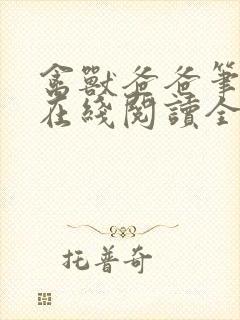 禽獸爸爸筆
在綫閱讀全
托普奇